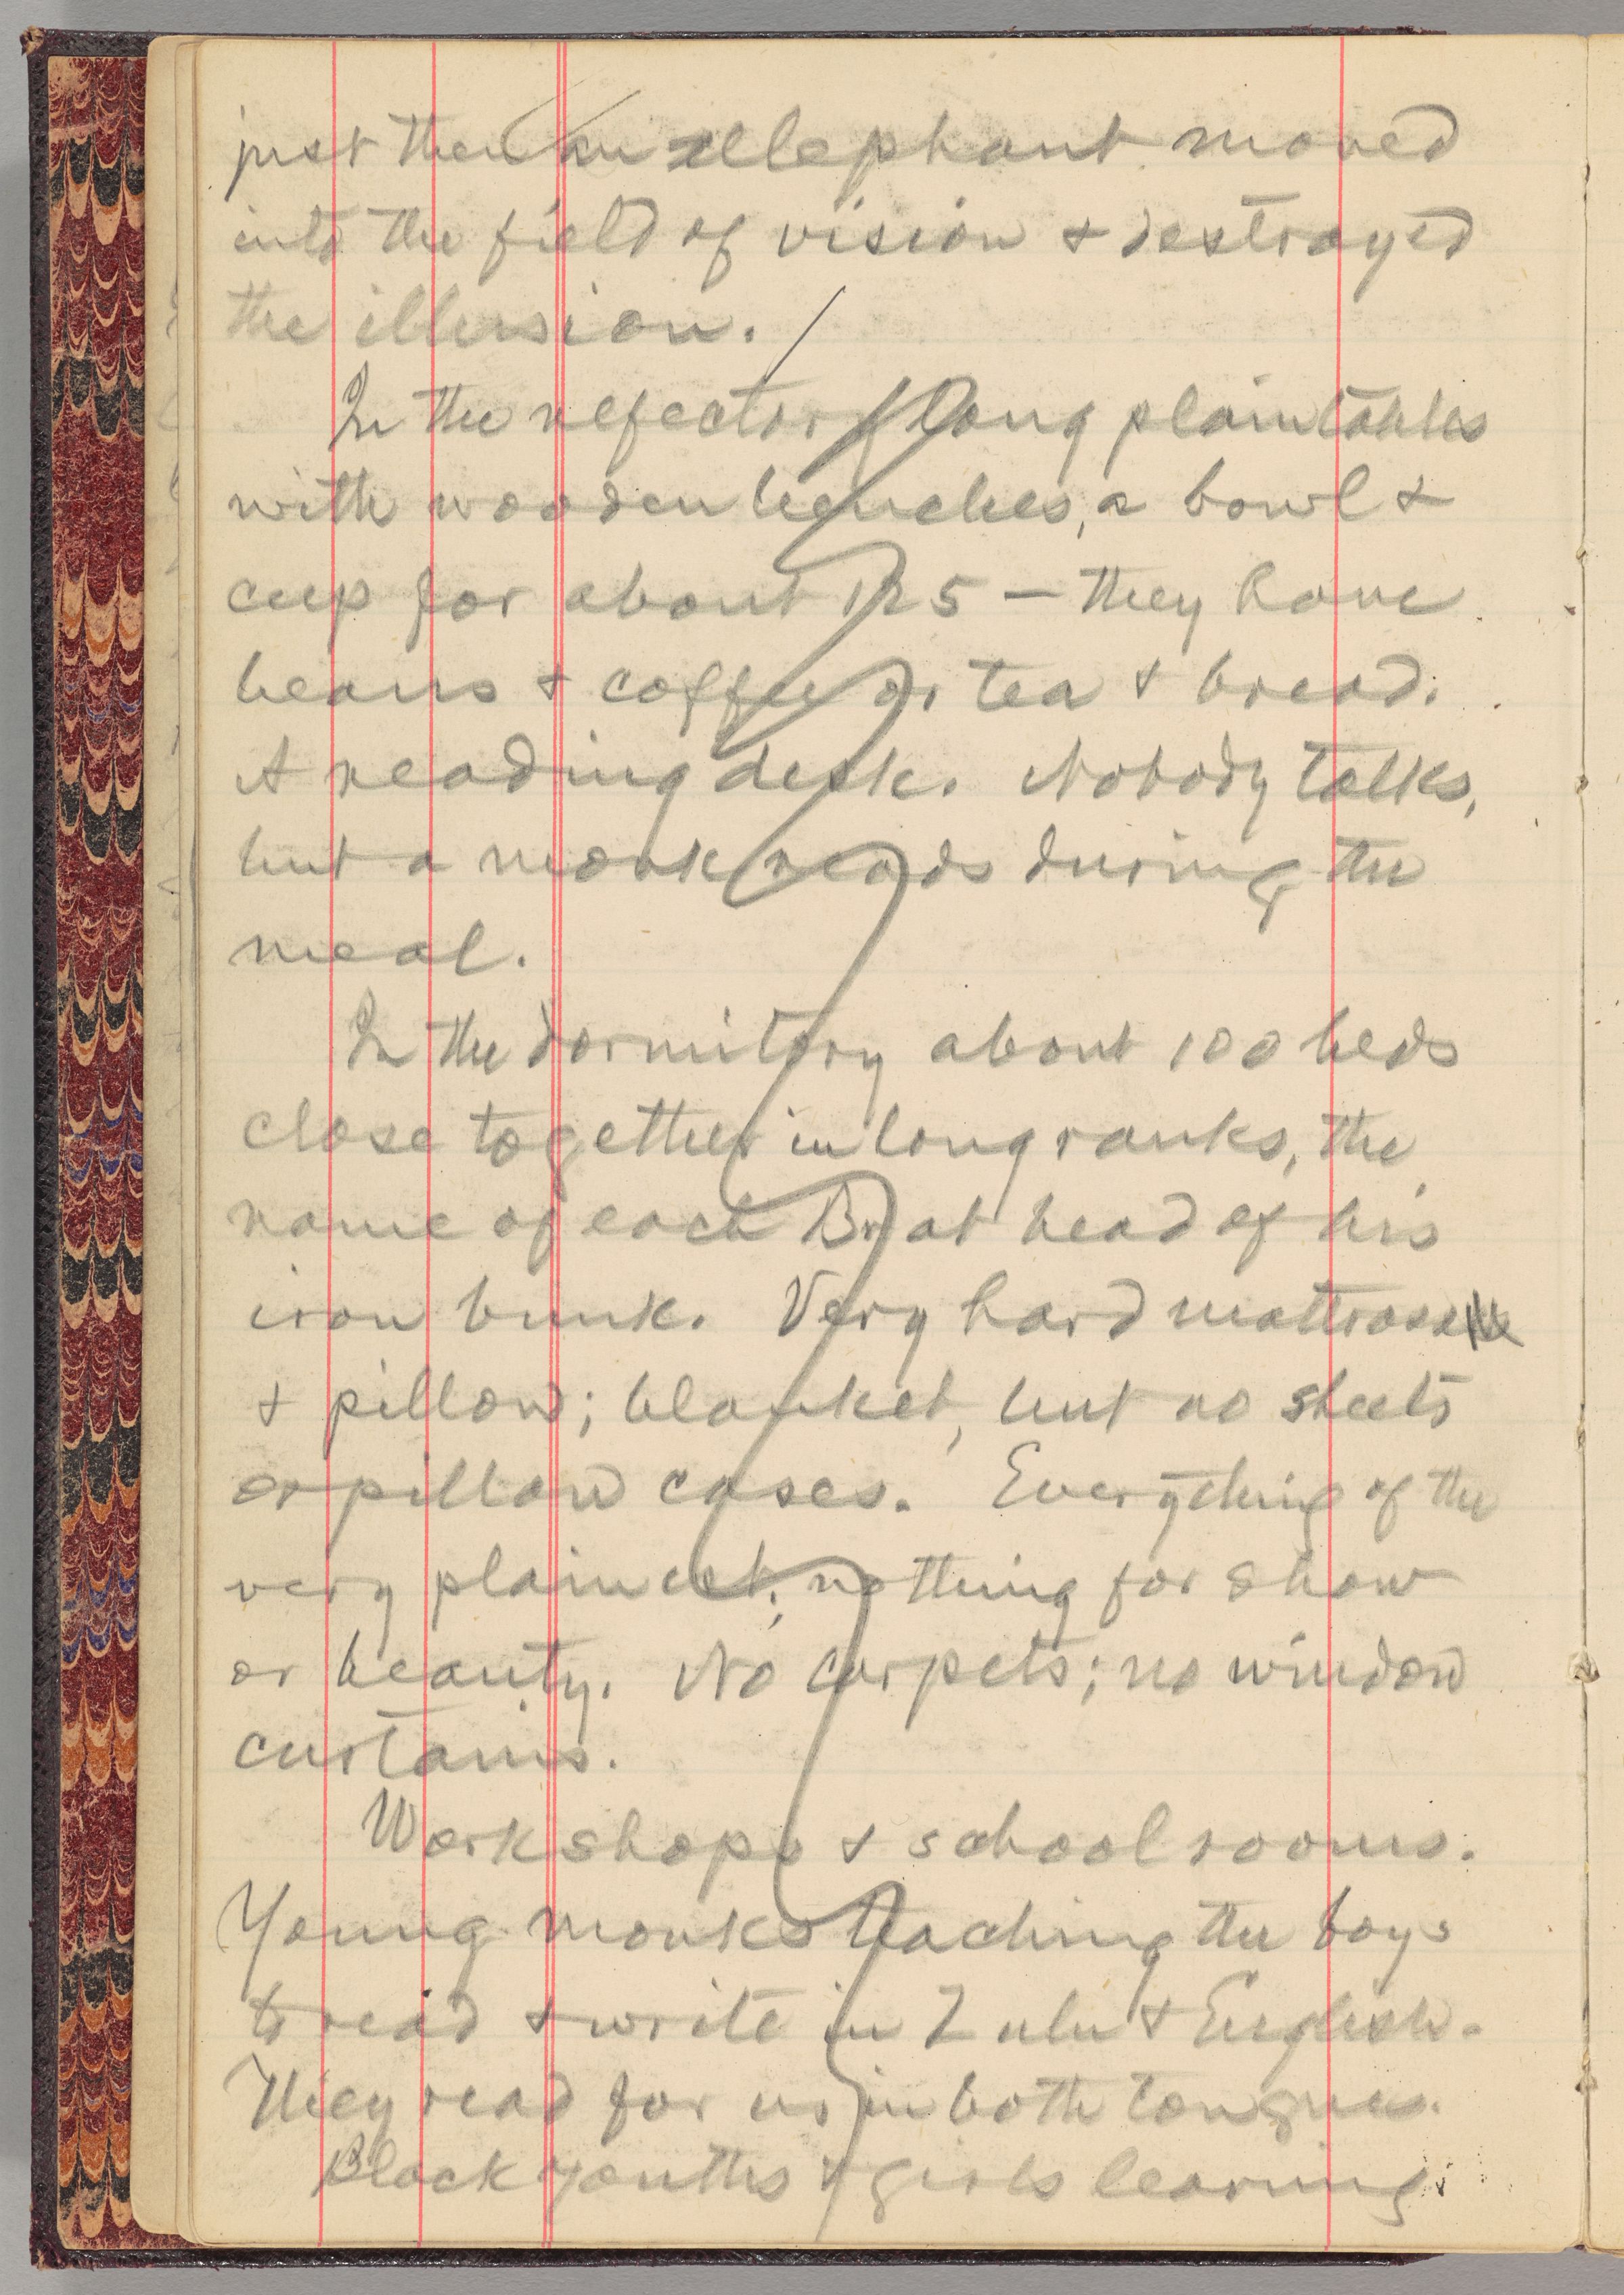 just then an elephant moved
into the field of vision & destroyed
the illusion.
In the refectory long plain tables
with wooden benches, a bowl &
cup for about 125 — they have
beans & coffee or tea & bread.
A reading desk. Nobody talks,
but a monk reads during the
meal.
In the dormitory about 100 beds
close together in long ranks, the
name of each Br at head of his
iron bunk. Very hard mattrass
& pillow; blanket, but no sheets
or pillow cases. Everything of the
very plainest; nothing for show
or beauty. No carpets; no window
curtains.
Workshops & school rooms.
Young monks teaching the boys
to read & write in Zulu & English.
They read for us in both tongues.
Black youths & girls learning